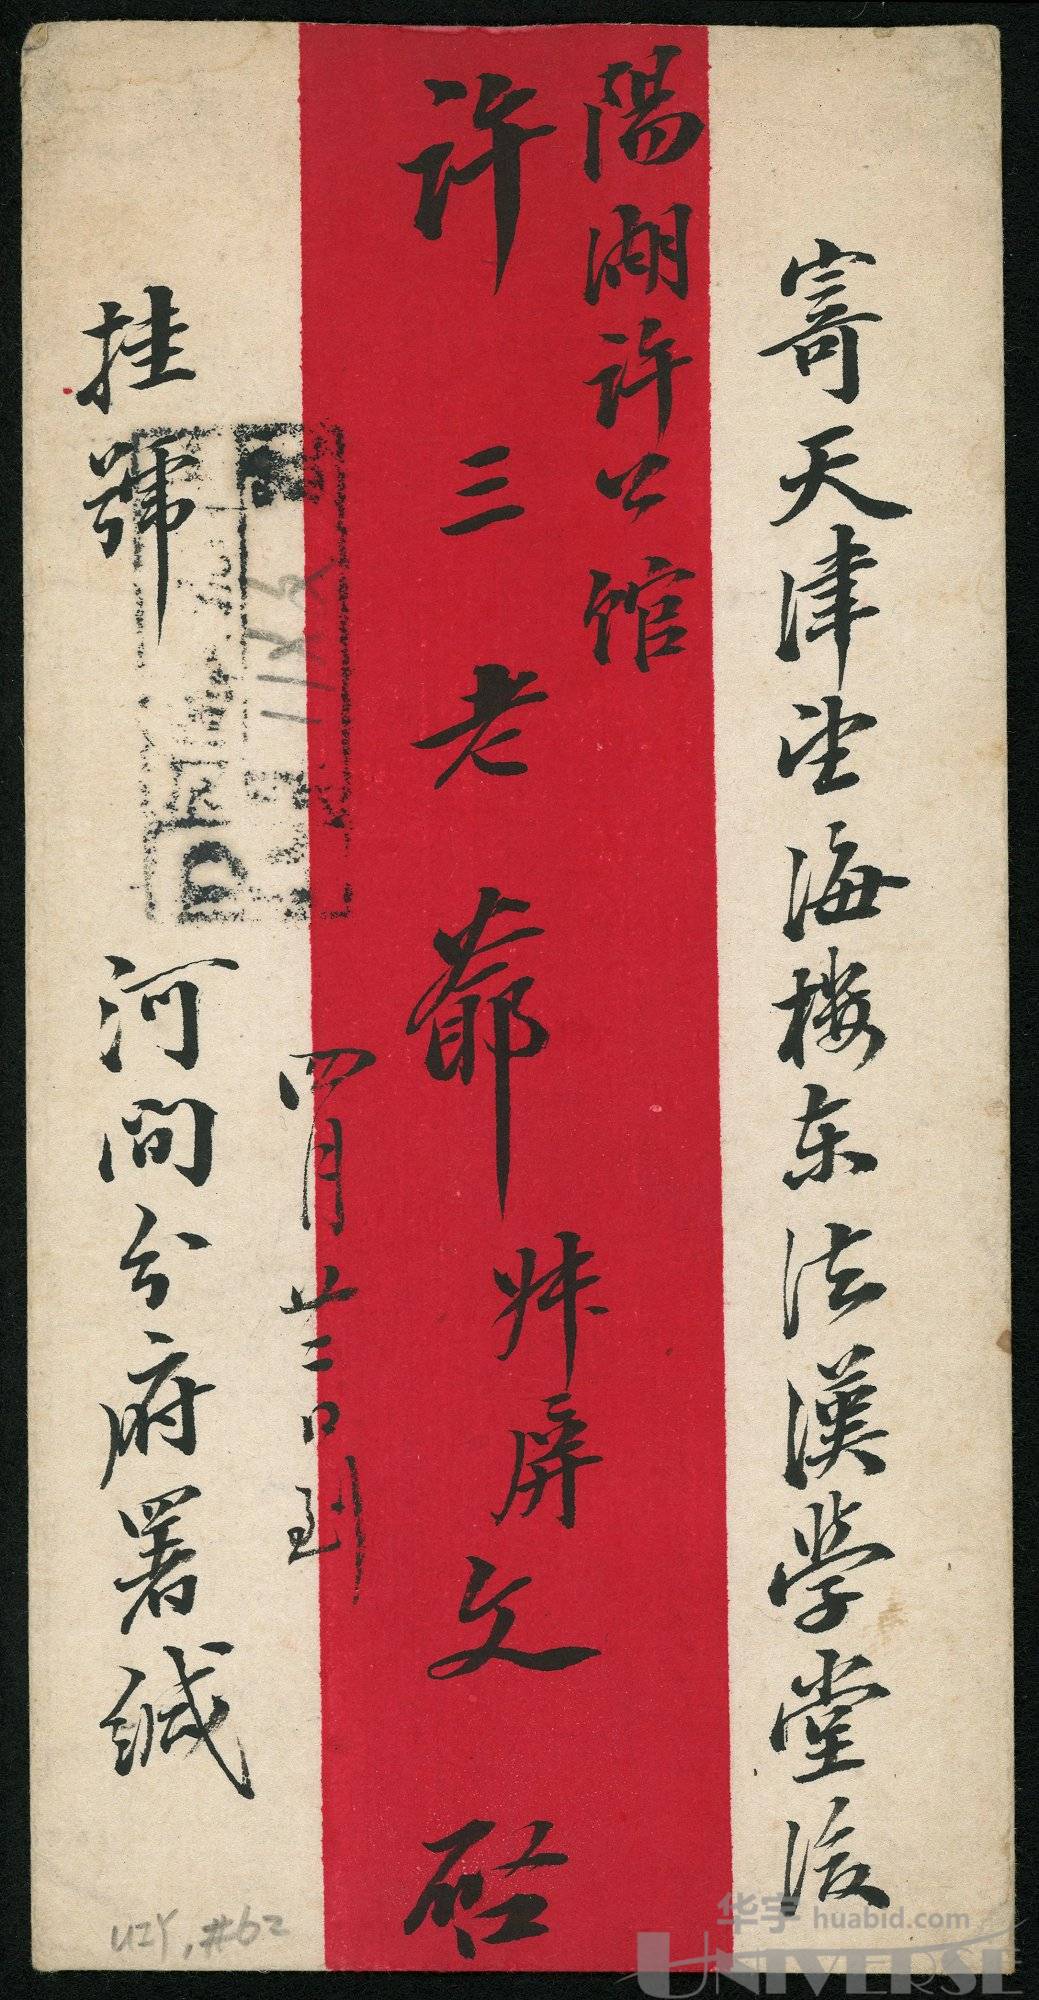 寄天津望海樓东法漢學堂後
陽湖許公館
許三老爺 屏文啓
四月廿二日到
挂號 河間分府署緘
U2Y, #62
华宇 huabid.com
UNIVERSE